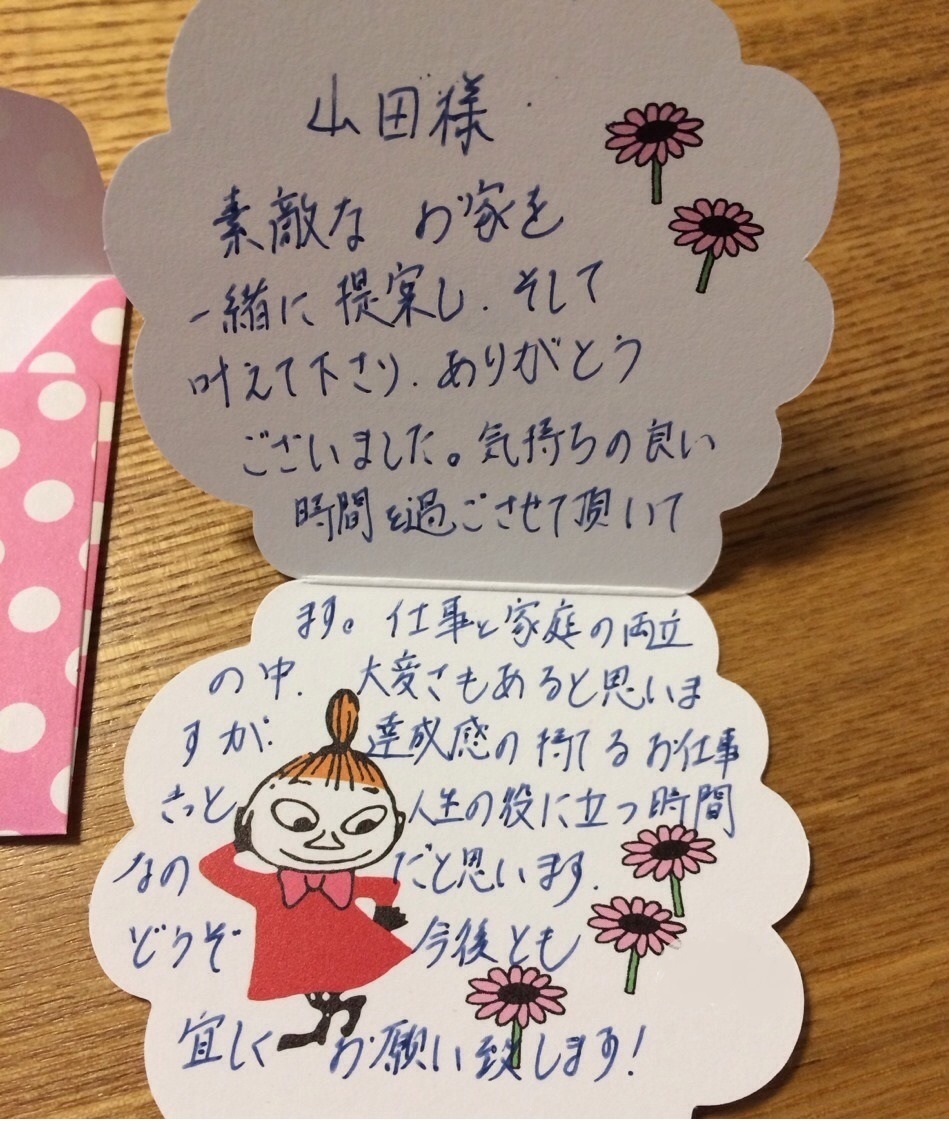 山田様
素敵な お家を
一緒に提案し、そして
叶えて下さり、ありがとう
ございました。気持ちの良い
時間を過ごさせて頂いて
ます。仕事と家庭の両立
の中、大変さもあると思いま
すが、達成感の持てるお仕事
きっと人生の役に立つ時間
なのだと思います。
どうぞ今後とも
宜しくお願い致します!